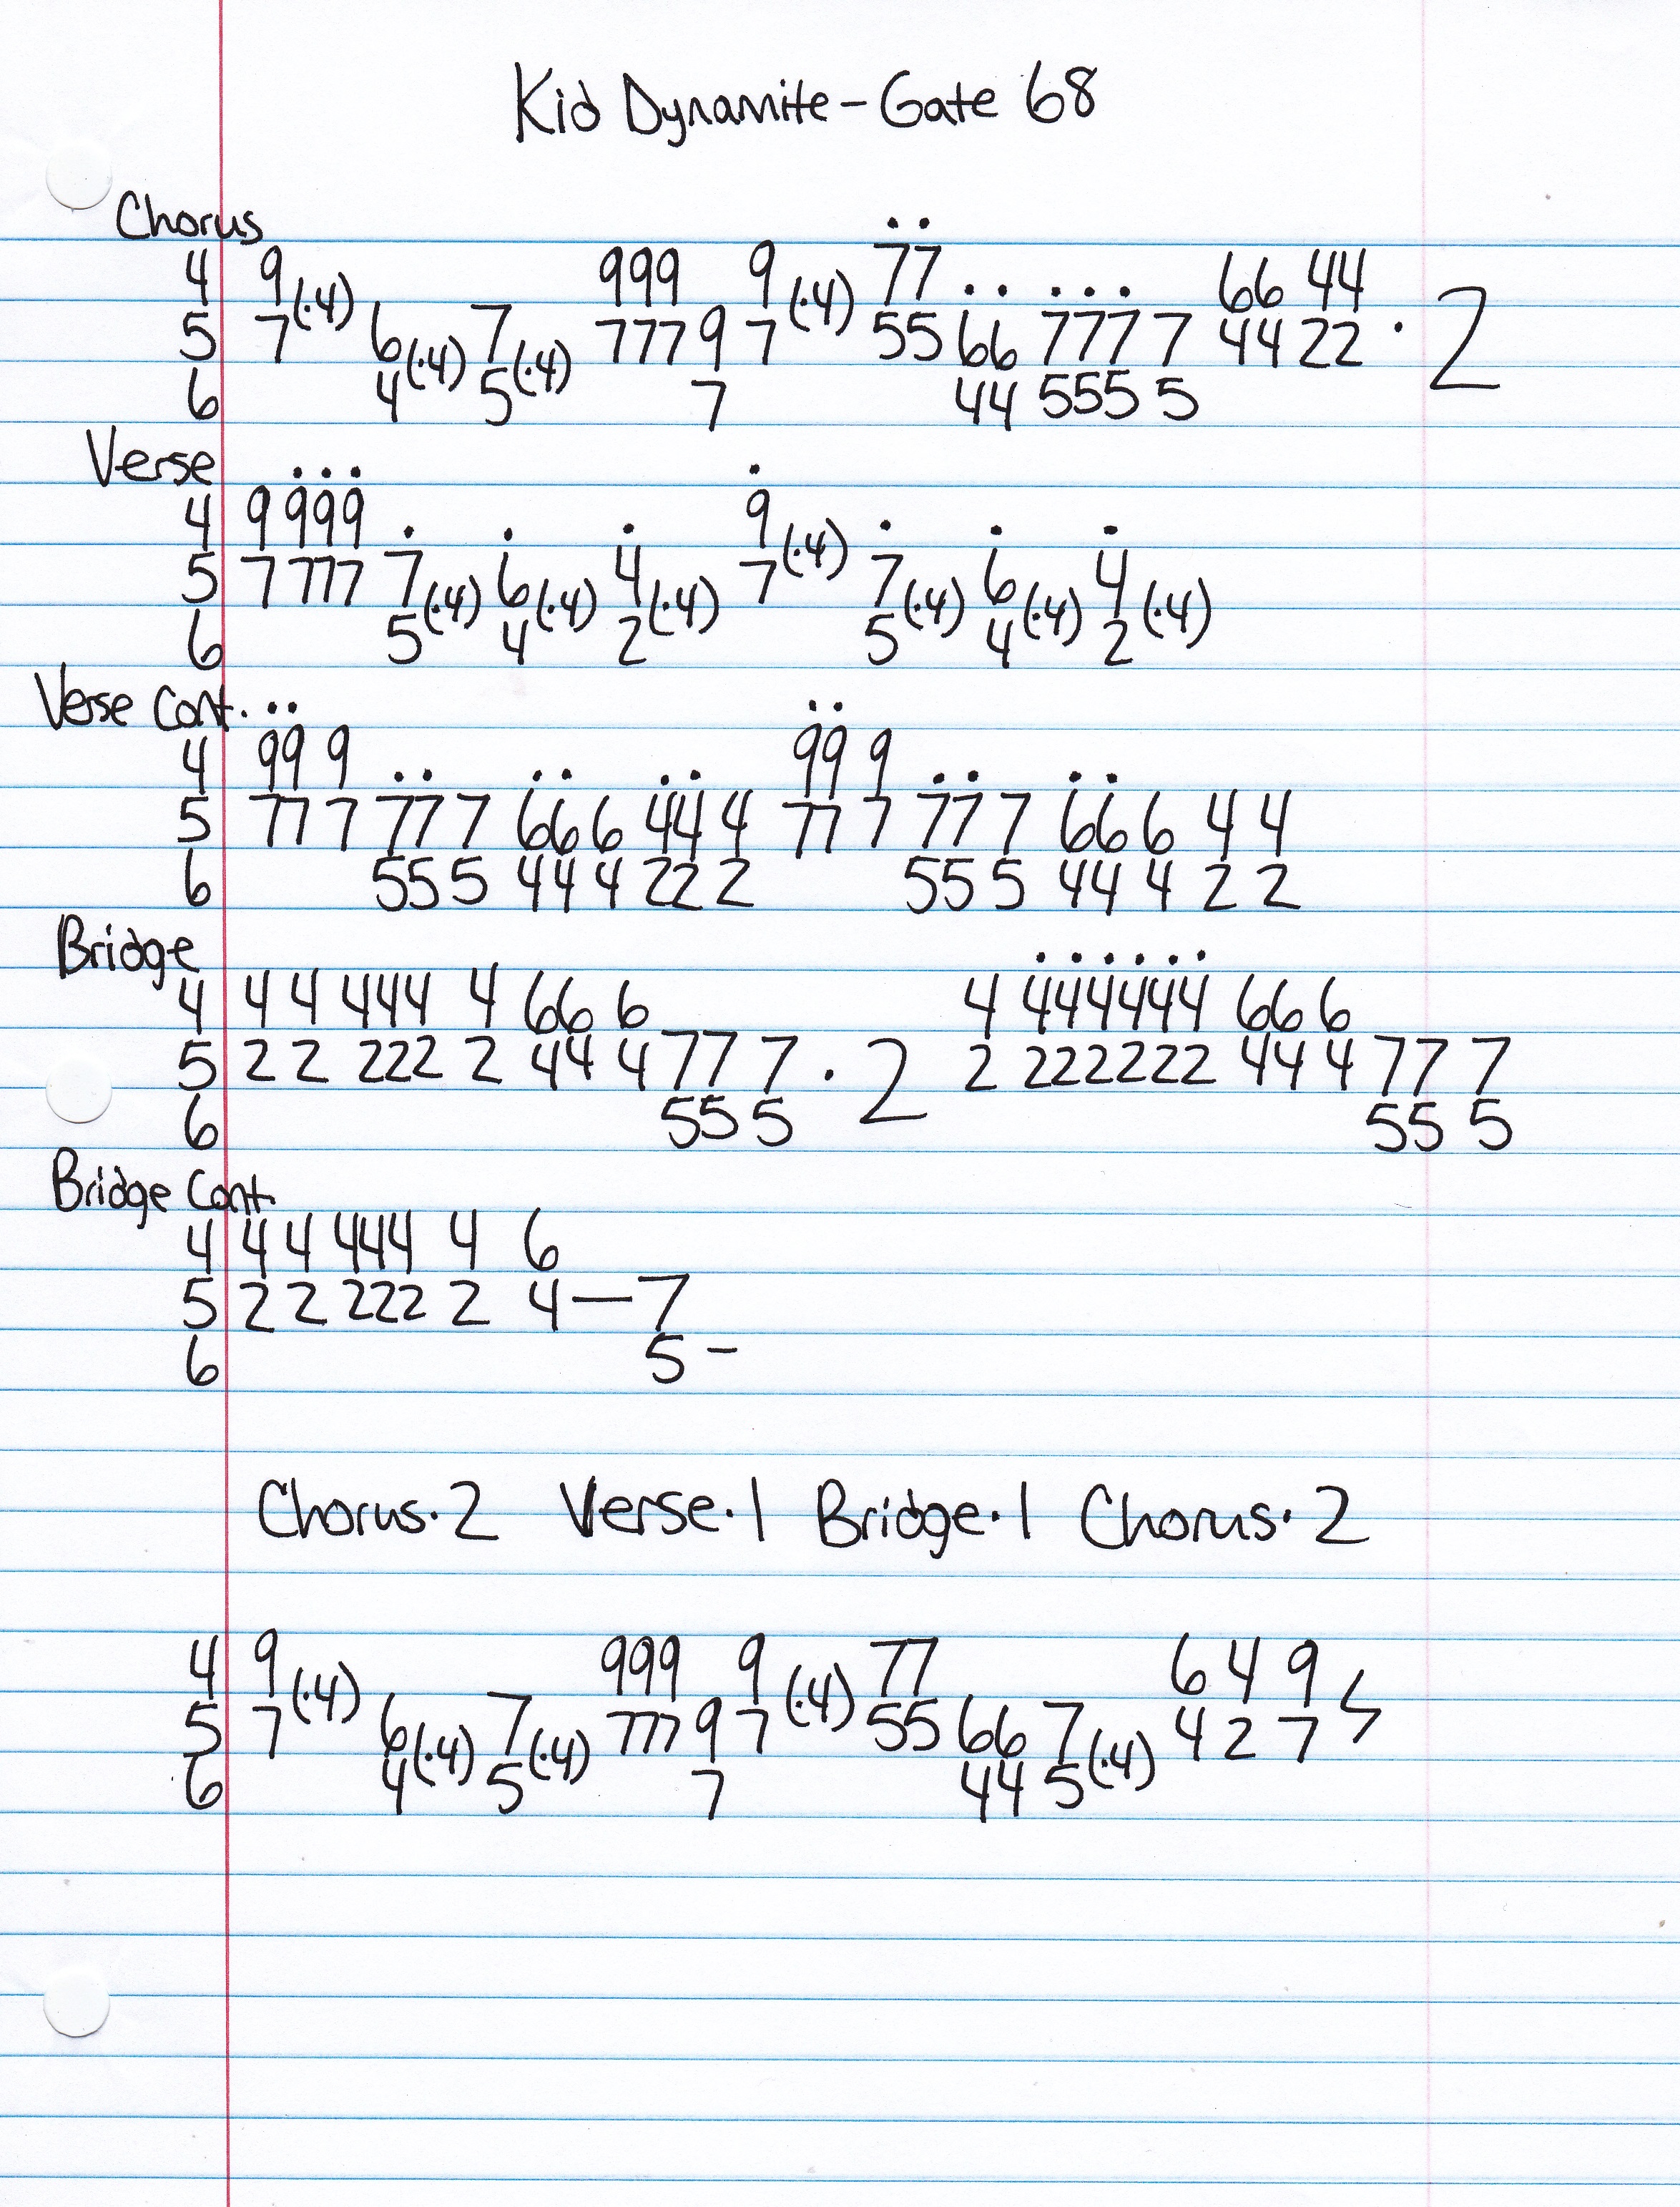 Kid Dynamite - Gate 68
Chorus
4 9(·4) 999 9(·4) 77 66 44
5 7 6(·4) 7(·4) 777 9 7 55 66 777 7 44 22 · 2
6 4 5 7 44 555 5
Verse
4 9 999 9(·4)
5 7 777 7(·4) 6(·4) 4(·4) 7 7(·4) 6(·4) 4(·4)
6 5 4 2 5 4 2
Verse Cont.
4 99 9 99 9
5 77 7 77 7 66 6 44 4 77 7 77 7 66 6 4 4
6 55 5 44 4 22 2 55 5 44 4 2 2
Bridge
4 4 4 444 4 66 6 4 444444 66 6
5 2 2 222 2 44 4 77 7 · 2 2 222222 44 4 77 7
6 55 5 55 5
Bridge Cont.
4 4 4 444 4 6
5 2 2 222 2 4 — 7
6 5 -
Chorus·2 Verse·1 Bridge·1 Chorus·2
4 9(·4) 999 9(·4) 77 6 4 9
5 7 6(·4) 7(·4) 777 9 7 55 66 7(·4) 4 2 7
6 4 5 7 44 5